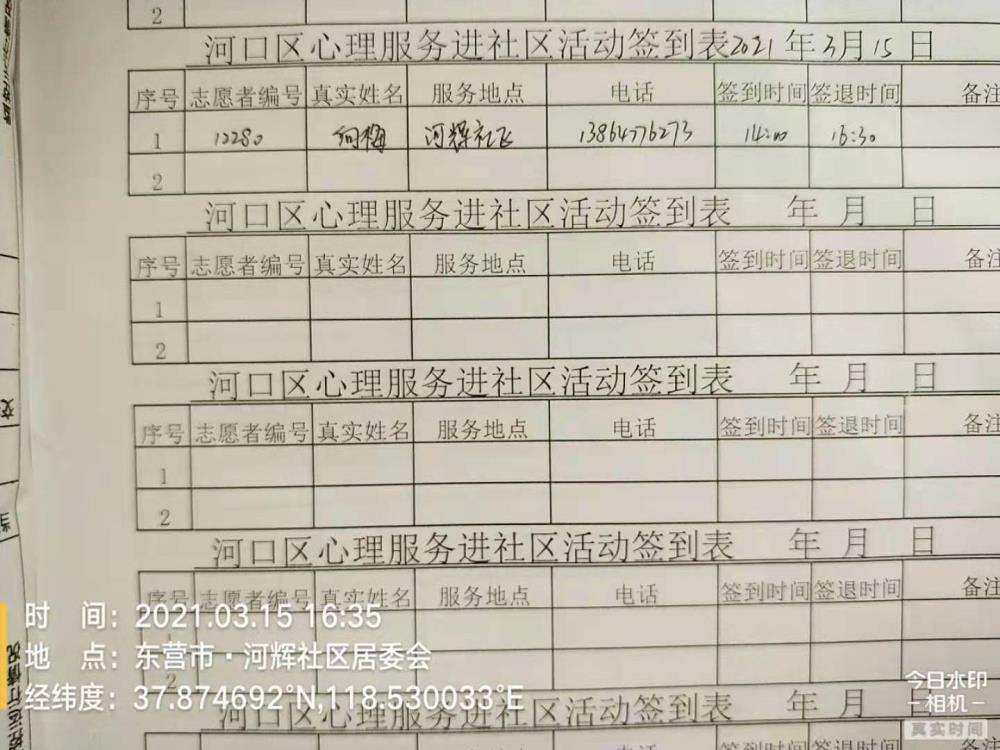 2
河口区心理服务进社区活动签到表2021年3月15日
序号 志愿者编号 真实姓名 服务地点 电话 签到时间 签退时间 备注
1 12280 向梅 河辉社区 13864776273 14:00 16:30
2
河口区心理服务进社区活动签到表 年 月 日
序号 志愿者编号 真实姓名 服务地点 电话 签到时间 签退时间 备注
1
2
河口区心理服务进社区活动签到表 年 月 日
序号 志愿者编号 真实姓名 服务地点 电话 签到时间 签退时间 备注
1
2
河口区心理服务进社区活动签到表 年 月 日
序号 志愿者编号 真实姓名 服务地点 电话 签到时间 签退时间 备注
1
2
河口区心理服务进社区活动签到表 年 月 日
时 间：2021.03.15 16:35
地 点：东营市·河辉社区居委会
经纬度：37.874692°N,118.530033°E
今日水印
-相机-
真实时间